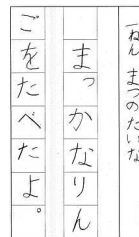 一ねん まつのたいな
まっかなりん
ごをたべたよ。